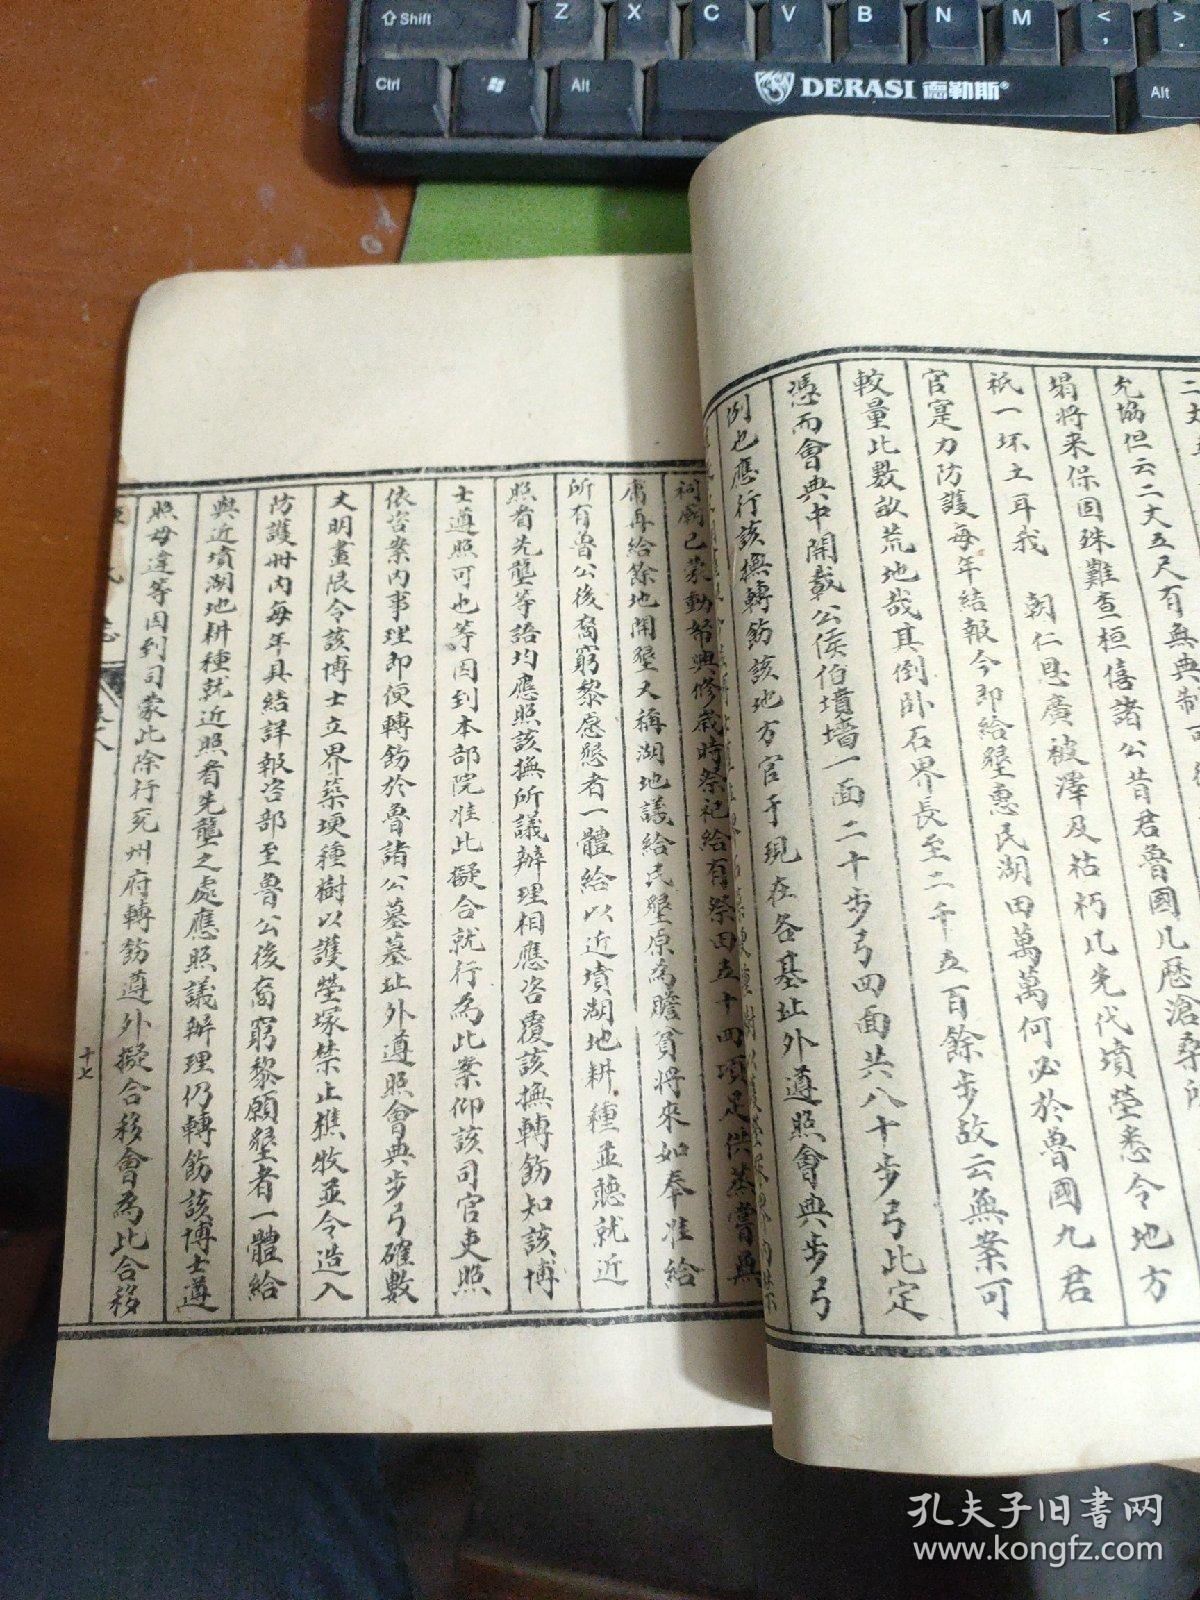 Shift Z X C V B N M < , >
Ctrl Alt DERASI 德勒斯® Alt
允協但云二丈五尺有無典制
塌將來保固殊難查桓僖諸公昔君魯國几歷滄桑
祇一坏土耳我 朝仁恩廣被澤及枯朽凡先代墳塋悉令地方
官寔力防護每年結報今即給墾惠民湖田萬萬何必於魯國九君
較量此數畝荒地哉其倒卧石界長至二千五百餘步故云無案可
憑而會典中開載公侯伯墳塋一面二十步弓四面共八十步弓此定
例也應行該撫轉飭該地方官于現在各墓址外遵照會典步弓
祠廟已蒙動帑興修歲時祭祀給有祭田五十四項足供蒸嘗無
庸再給餘地開墾又稱湖地議給民墾原為贍貧將來如奉准給
所有魯公後裔窮黎愿墾者一體給以近墳湖地耕種並聽就近
照看先壟等語均應照該撫所議辦理相應咨覆該撫轉飭知該博
士遵照可也等因到本部院准此擬合就行為此案仰該司官吏照
依咨案內事理即便轉飭於魯諸公墓墓址外遵照會典步弓確數
丈明畫限令該博士立界築埂種樹以護塋塚禁止樵牧並令造入
防護冊內每年具結詳報咨部至魯公後裔窮黎願墾者一體給
與近墳湖地耕種就近照看先壟之處應照議辦理仍轉飭該博士遵
照毋違等因到司蒙此除行兖州府轉飭遵外擬合移會為此合移
十七
孔夫子旧书网
www.kongfz.com